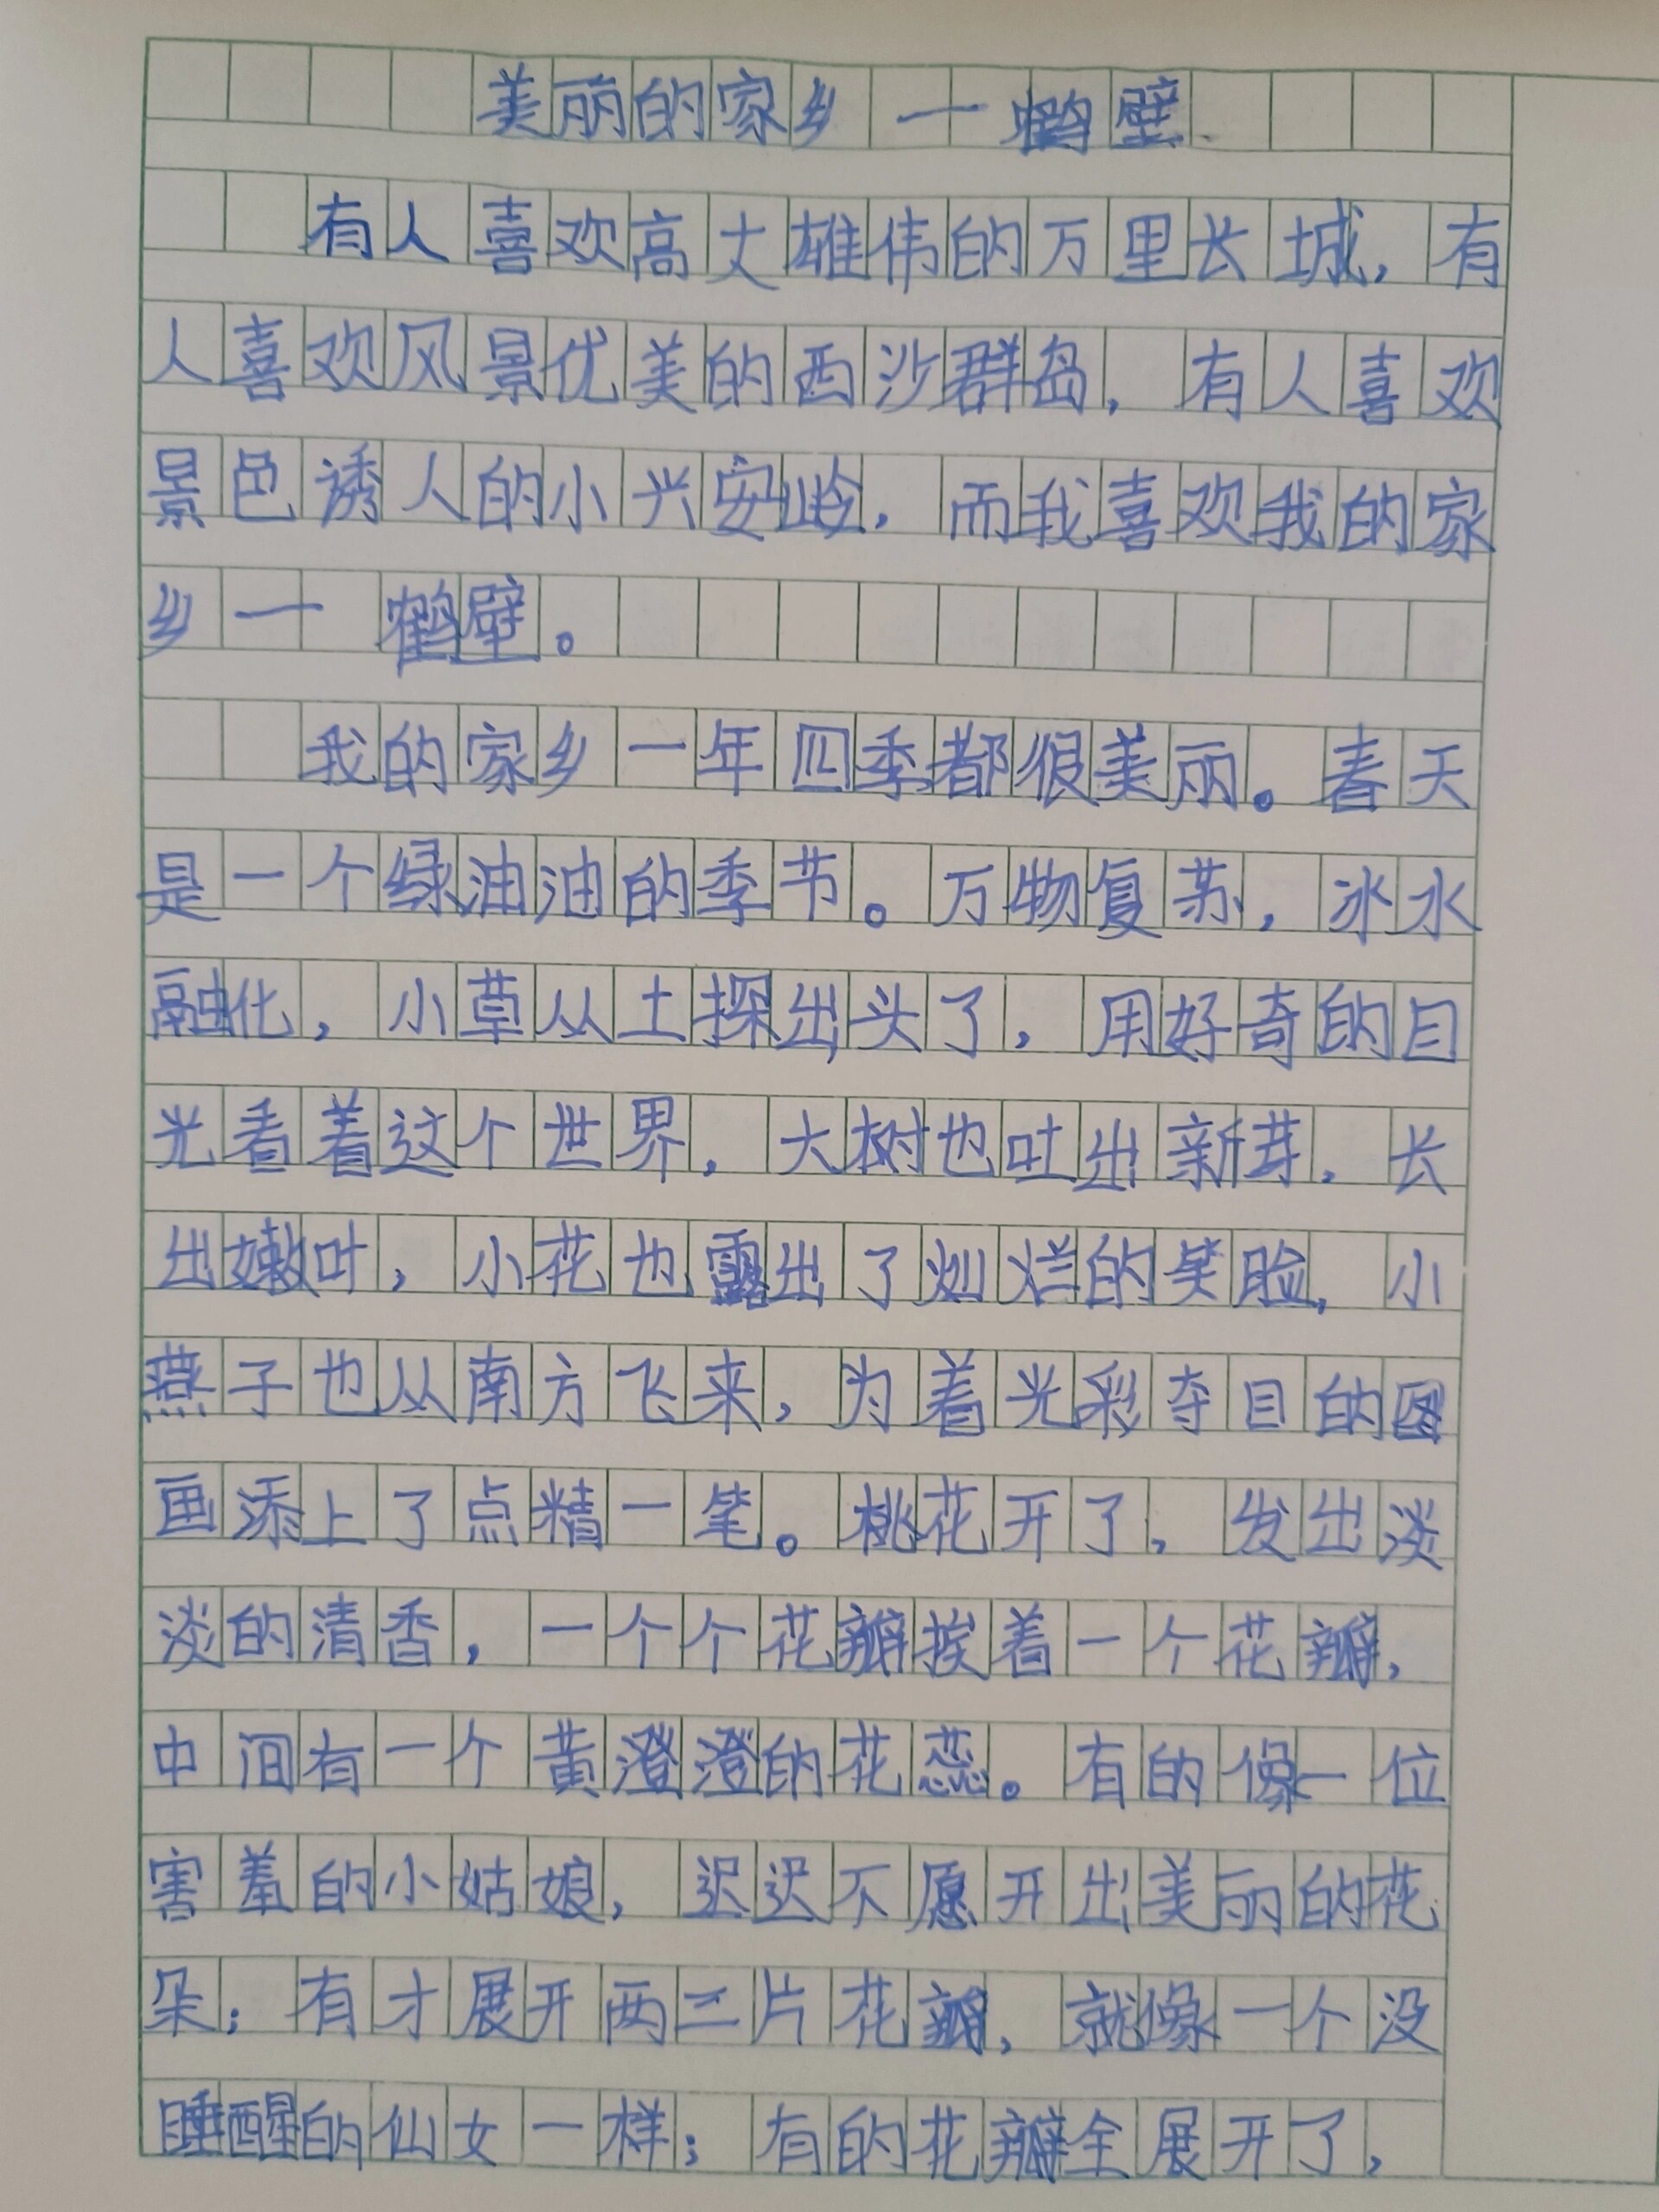 美丽的家乡一鹤壁
有人喜欢高大雄伟的万里长城，有
人喜欢风景优美的西沙群岛，有人喜欢
景色诱人的小兴安岭，而我喜欢我的家
乡一鹤壁。
我的家乡一年四季都很美丽。春天
是一个绿油油的季节。万物复苏，冰水
融化，小草从土探出头了，用好奇的目
光看着这个世界，大树也吐出新芽，长
出嫩叶，小花也露出了灿烂的笑脸，小
燕子也从南方飞来，为着光彩夺目的图
画添上了点精一笔。桃花开了，发出淡
淡的清香，一个个花瓣挨着一个花瓣，
中间有一个黄澄澄的花蕊。有的像一位
害羞的小姑娘，迟迟不愿开出美丽的花
朵；有才展开两三片花瓣，就像一个没
睡醒的仙女一样；有的花瓣全展开了，